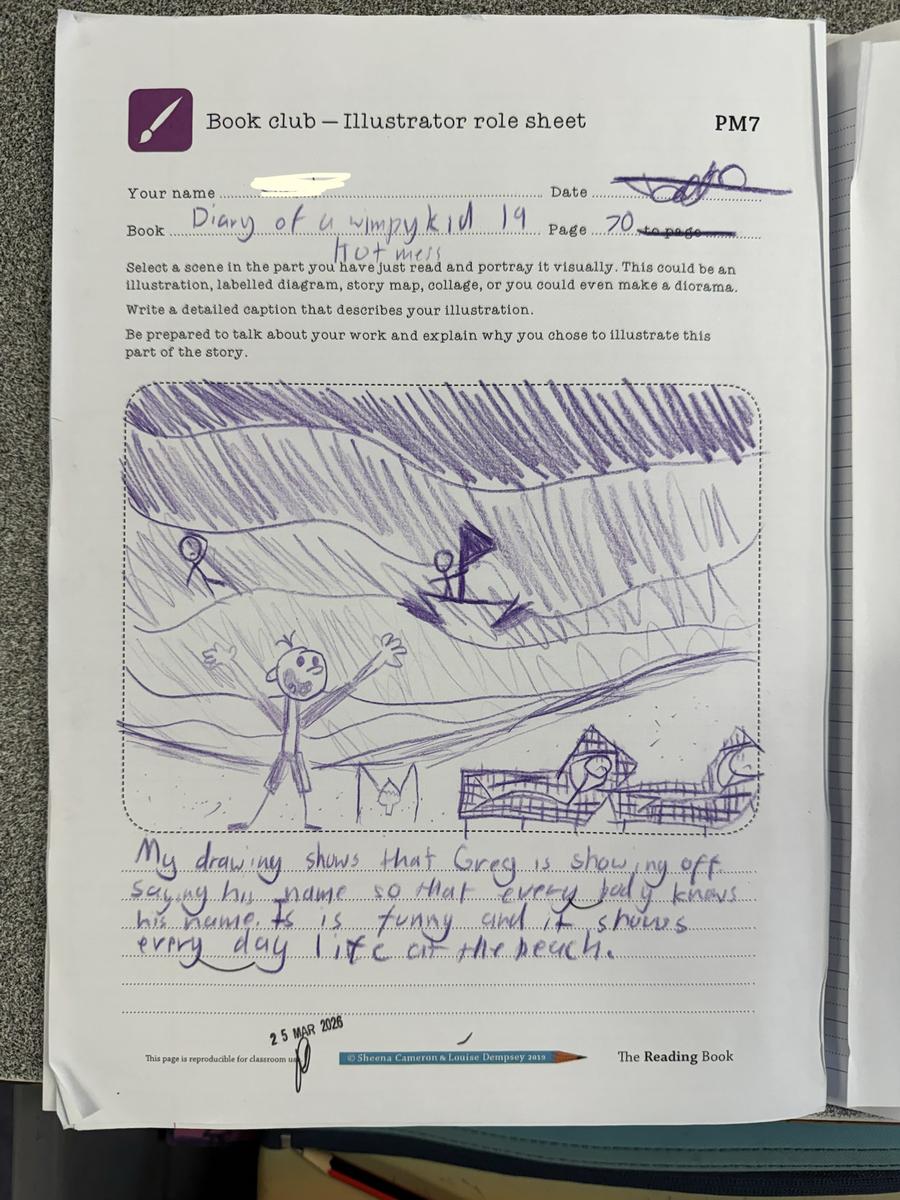 Book club — Illustrator role sheet PM7
Your name Date
Book Diary of a wimpy kid 19 Page 70 to page
Hot mess
Select a scene in the part you have just read and portray it visually. This could be an
illustration, labelled diagram, story map, collage, or you could even make a diorama.
Write a detailed caption that describes your illustration.
Be prepared to talk about your work and explain why you chose to illustrate this
part of the story.
My drawing shows that Greg is showing off
saying his name so that every body knows
his name. Is is funny and it shows
every day life at the beach.
25 MAR 2026
This page is reproducible for classroom
© Sheena Cameron & Louise Dempsey 2019
The Reading Book